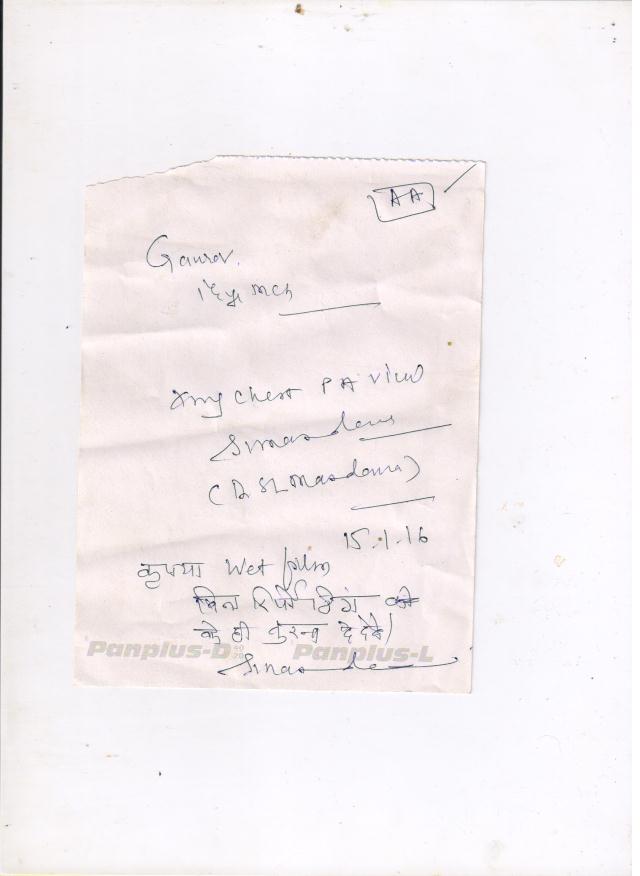 AA
Gaurav.
Xray Chest PA view
(Dr SL Masdana)
15.1.16
कृपया Wet film
बिना रिपोर्टिंग के
के ही तुरन्त दे देवें/
Panplus-D Panplus-L